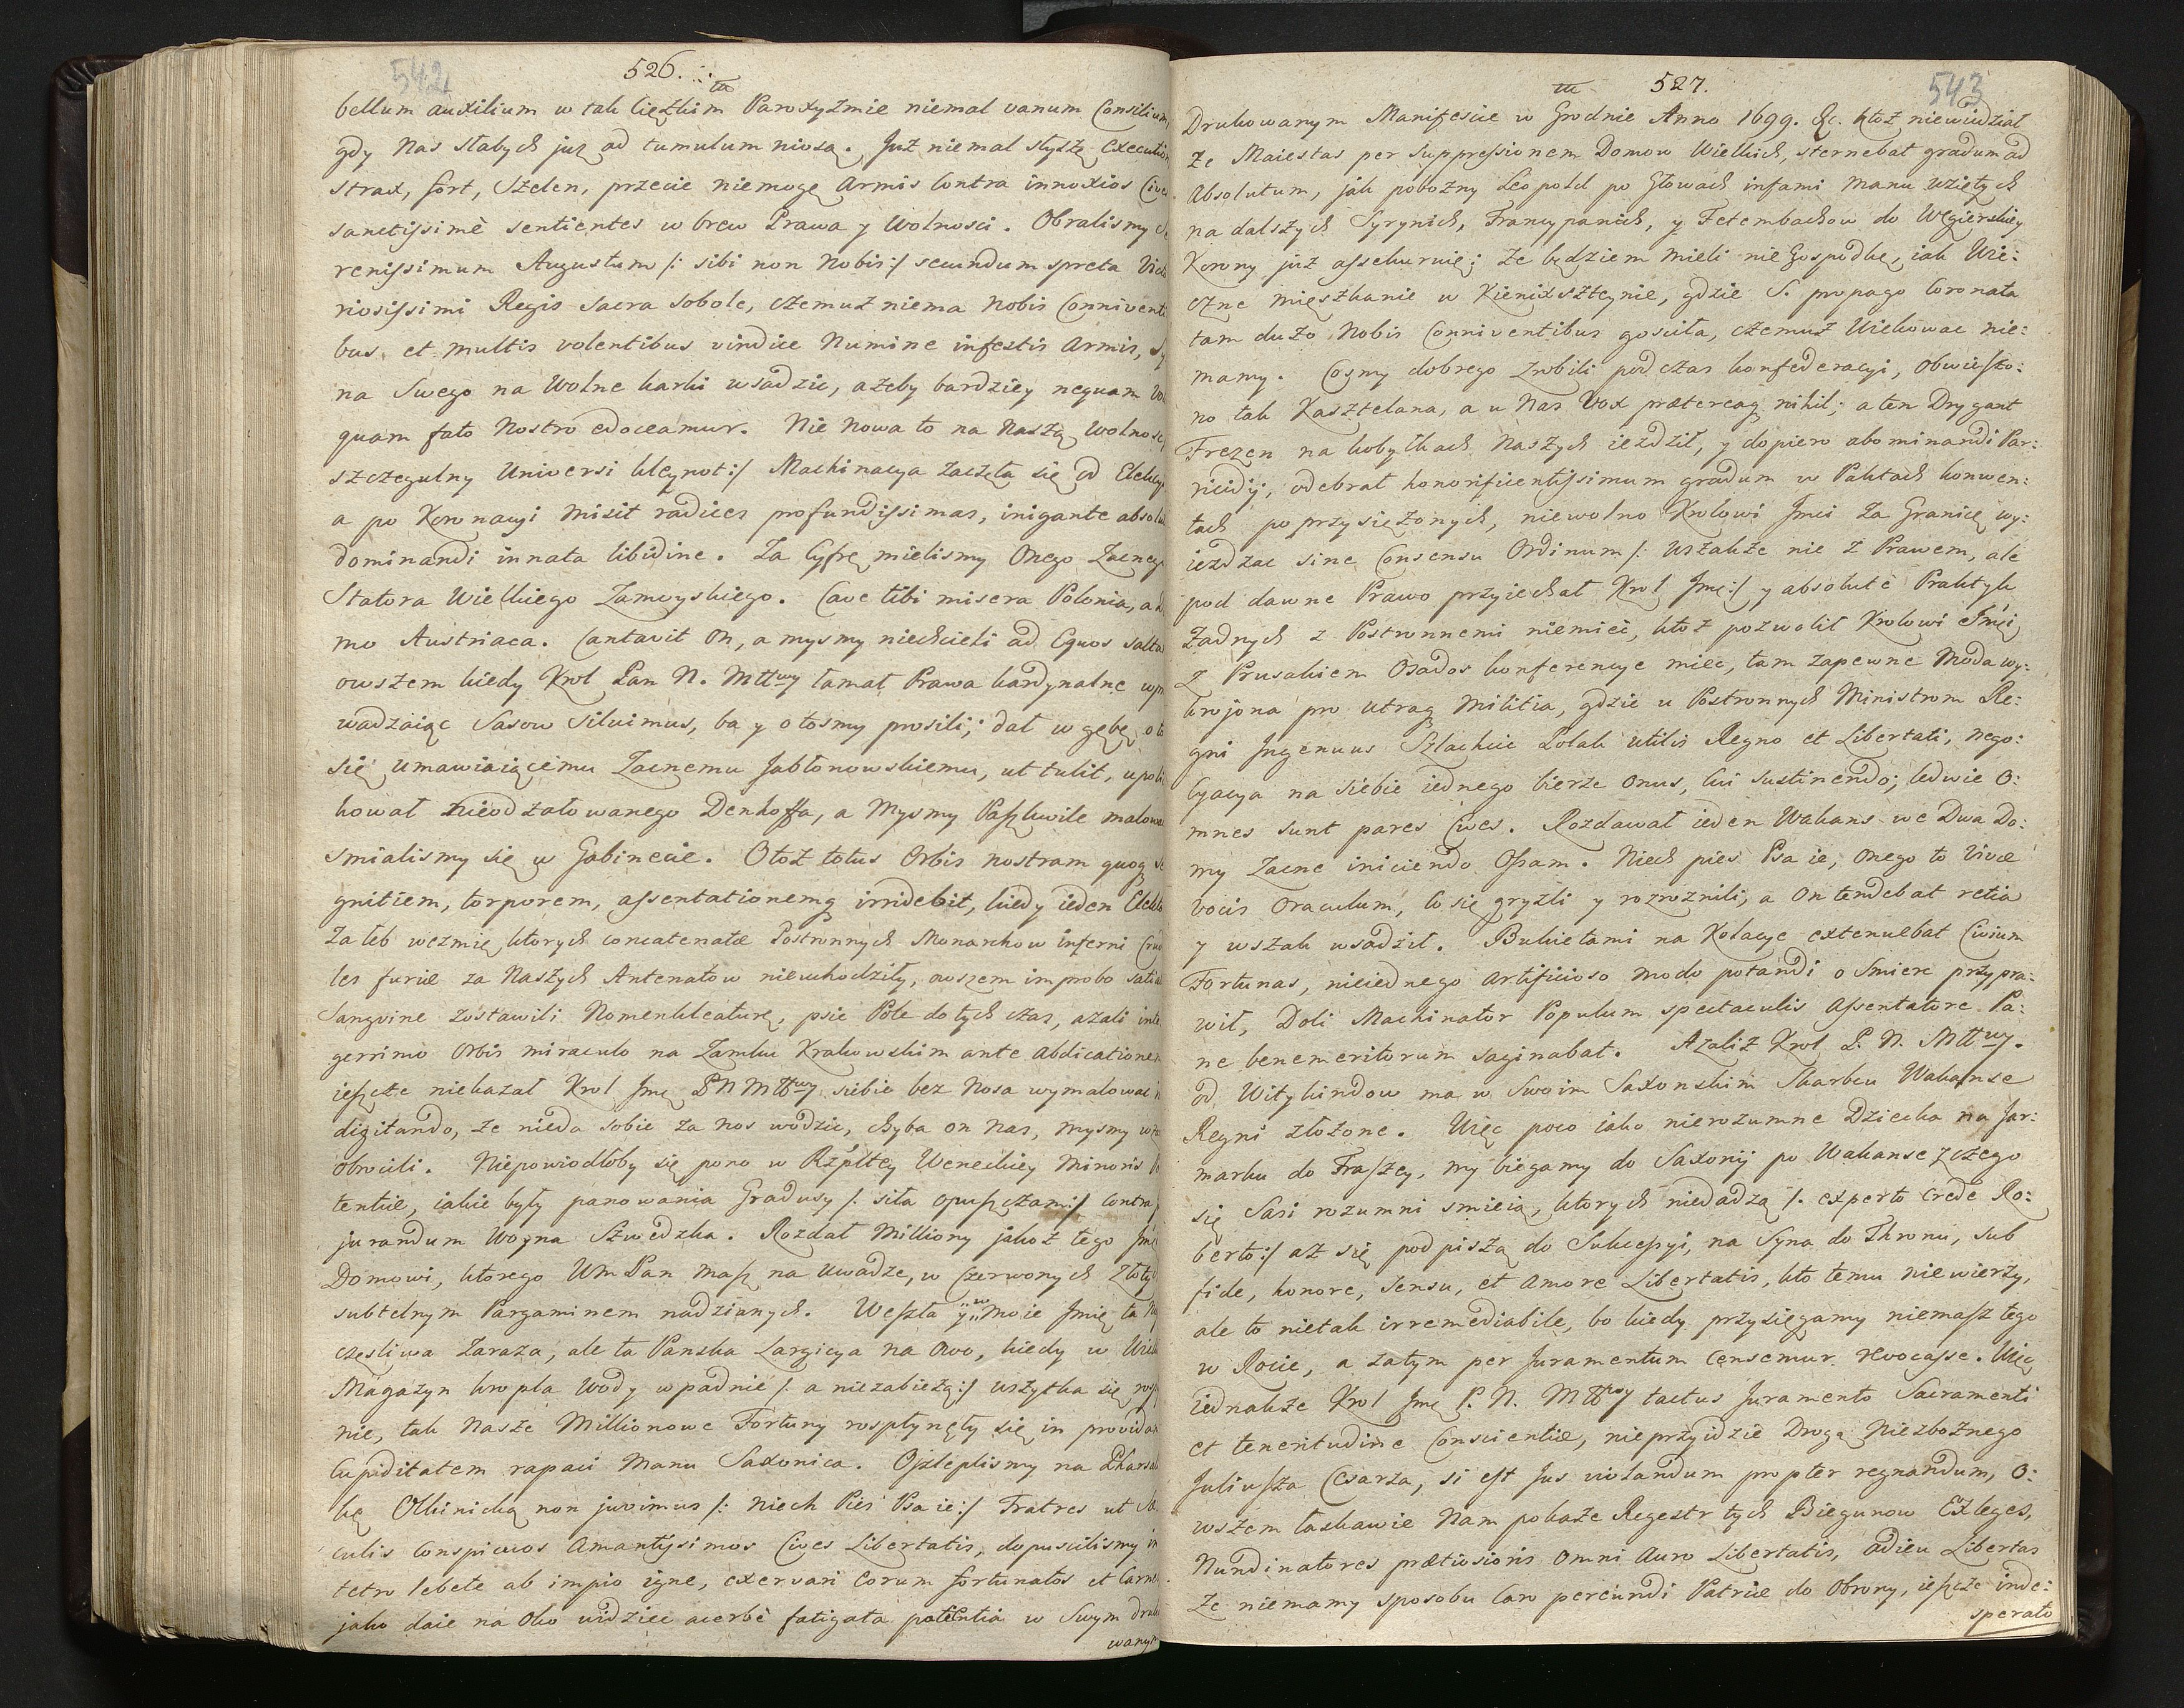 542
526.
bellum auxilium w tak cięzkim Paroxyzmie niemal vanum Consilium,
gdy Nas słabych już ad tumulum niosą. Już niemal słyszę
strax, fort, Sztelen, przecie niemogę armis contra innoxios
sanctissimè sentientes w brew Prawa y Wolnosci. Obralismy
renissimum Augustum /: sibi non Nobis :/ secundum spreta
riosissimi Regis Sacra Sobole, czemuż niema Nobis
bus, et multis volentibus vindice Numine infestis Armis,
na Swego na Wolne karki wsadzic, azeby bardziey nequam
quam fato Nostro edoceamur. Nie Nowa to na Naszą Wolnosc,
szczegulny Universi kleynot :/ Machinacya zaczęła się od
a po Koronacyi misit radices profundissimas, inigante
dominandi innata libidine. Za Cyfrę mielismy Onego
Statora Wielkiego Zamoyskiego. Cave tibi misera Polonia, a
mo Austriaca. Cantavit On, a mysmy niechcieli ad Equos
owszem kiedy Krol Pan N. Mttwy łamał Prawa kardynalne
wadzaiąc Sasow Siluimus, ba y o tosmy prosili; dał w gębę, o to
się umawiaiącemu Zacnemu Jabłonowskiemu, ut tulit,
kował nieodzałowanego Denhoffa, a Mysmy Paszkwile
smialismy się w Gabinecie. Otoż totus Orbis nostram quoq
gnitiem, torporem, assentationemq irridebit, kiedy ieden
Za łeb wezmie, ktorych concatenatæ Postronnych Monarchow inferni
les furiæ za Naszych Antenatow niewchodziły, owszem improbo
Sangvine zostawili Nomenkleaturę, psie Pole do tych czas, azali
gerrimo Orbis miraculo na Zamku Krakowskim ante abdicationem
ieszcze niekazał Krol Jmc P N Mttwy siebie bez Nosa wymalowac
digitando, ze nieda sobie za nos wodzic, chyba on Nas, mysmy
obrocili. Niepowiodłoby się pono w Rzpltey Weneckiey Minoris
tentiæ, iakie były panowania Gradusy /: siła opuszczam :/ contra
jurandum Woyna Szwedzka. Rozdał Milliony jakoż tego
Domowi, ktorego Wm Pan masz na uwadze, w Czerwonych
subtelnym Pargaminem nadzianych. Weszła y w moie Imię ta
częsliwa zaraza, ale ta Panska Largicya na Owo, kiedy w
Magazyn kropla Wody wpadnie /: a niezabieżą :/ wszytka się
nie, tak Nasze Millionowe Fortuny rospłynęły się in
Cupiditatem rapaci Manu Saxonica. Oszleplismy na
kę Olkinicką non juvimus /: niech Pies Psa ie :/ Fratres ut
culis Conspicuos Amantissimos Cives Libertatis, dopuscilismy
tetro lebete ab impio igne, exervari Eorum fortunatos et
jako daie na Oko widziec acerbè fatigata patientia w Swym
wanym
543
527.
Drukowanym Manifescie w Grodnie Anno 1699. &c. ktoż niewidział
że Maiestas per Suppressionem Domow Wielkich, sternebat gradum ad
Absolutum, jak pobożny Leopold po Głowach infami Manu wziętych
na dalszych Syrynich, Francypanich, y Fetembachow do Węgierskiey
Korony już assekuruię; że będziem mieli nie Gospodkę, iak Wie:
czne mięszkanie w Kienixszteynie, gdzie S. propago Coronata
tam dużo Nobis Conniventibus gosciła, czemuż Wiekowac nie:
mamy. Cosmy dobrego zrobili pod czas konfederacyi, obwieszo:
no tak Kasztelana, a u Nas Vox prætereaq nihil; a ten Drygant
Frezen na kobyłkach Naszych iezdził, y dopiero abominandi Par:
ricidij, odebrał honorificentissimum gradum w Paktach konwen:
tach poprzysiężonych, niewolno Krolowi Jmci za Granicę wy:
iezdzac sine Consensu Ordinum /: wszakże nie z Prawem, ale
pod dawne Prawo przyiechał Krol Jmc :/ y absolutè Praktyk
Żadnych z Postronnemi niemiec, ktoż pozwolił Krolowi Jmci
z Prusakiem Osados konferencye miec, tam zapewne Moda wy:
krojona pro utraq Militia, gdzie u Postronnych Ministrom Re:
gni Ingenuus Szlachcic Polak utilis Regno et Libertati, nego:
cyacya na siebie iednego bierze Onus, kui sustinendo; ledwie O:
mnes sunt pares Cives. Rozdawał ieden Wakans we Dwa Do:
my Zacne iniciendo Ossam. Niech pies Psa ie, onego to Vivæ
vocis Oraculum, co się gryzli y rozroznili, a On tendebat retia
y wszak wsadził. Bukietami na Kolacye extenuebat Civium
Fortunas, nieiednego artificioso modo potandi o Smierc przypra:
wił, Doli Machinator Populum spectaculis Assentatore Pa:
ne benemeritorum saginabat. Azaliż Krol P. N. Mttwy.
od Witykindow ma w Swoim Saxonskim Skarbcu Wakanse
Regni złożone. Więc poco iako nierozumne Dziecka na Jar:
marku do Fraszey, my biegamy do Saxonij po Wakanse z czego
się Sasi rozumni smieią, ktorych niedadzą /: experto crede Ro:
berto :/ aż się podpiszą do Sukcessyi, na Syna do Thronu, sub
fide, honore, Sensu, et Amore Libertatis, kto temu niewierzy,
ale to nietak irremediabile, bo kiedy przysięgamy niemasz tego
w Rocie, a zatym per Juramentum Censemur revocasse. Więc
iednakże Krol Jmc P. N. Mttwy tactus Juramento Sacramenti
et teneritudine Conscientiæ, nieprzyidzie Drogą Niezbożnego
Juliusza Cesarza, si est Jus violandum propter regnandum, O:
wszem łaskawie Nam pokaże Regestr tych Biegunow Exleges,
Nundinatores prætiosioris omni Auro Libertatis, adieu Libertas
Ze niemamy sposobu Caro pereundi Patriæ do Obrony, ieszcze inde:
sperato